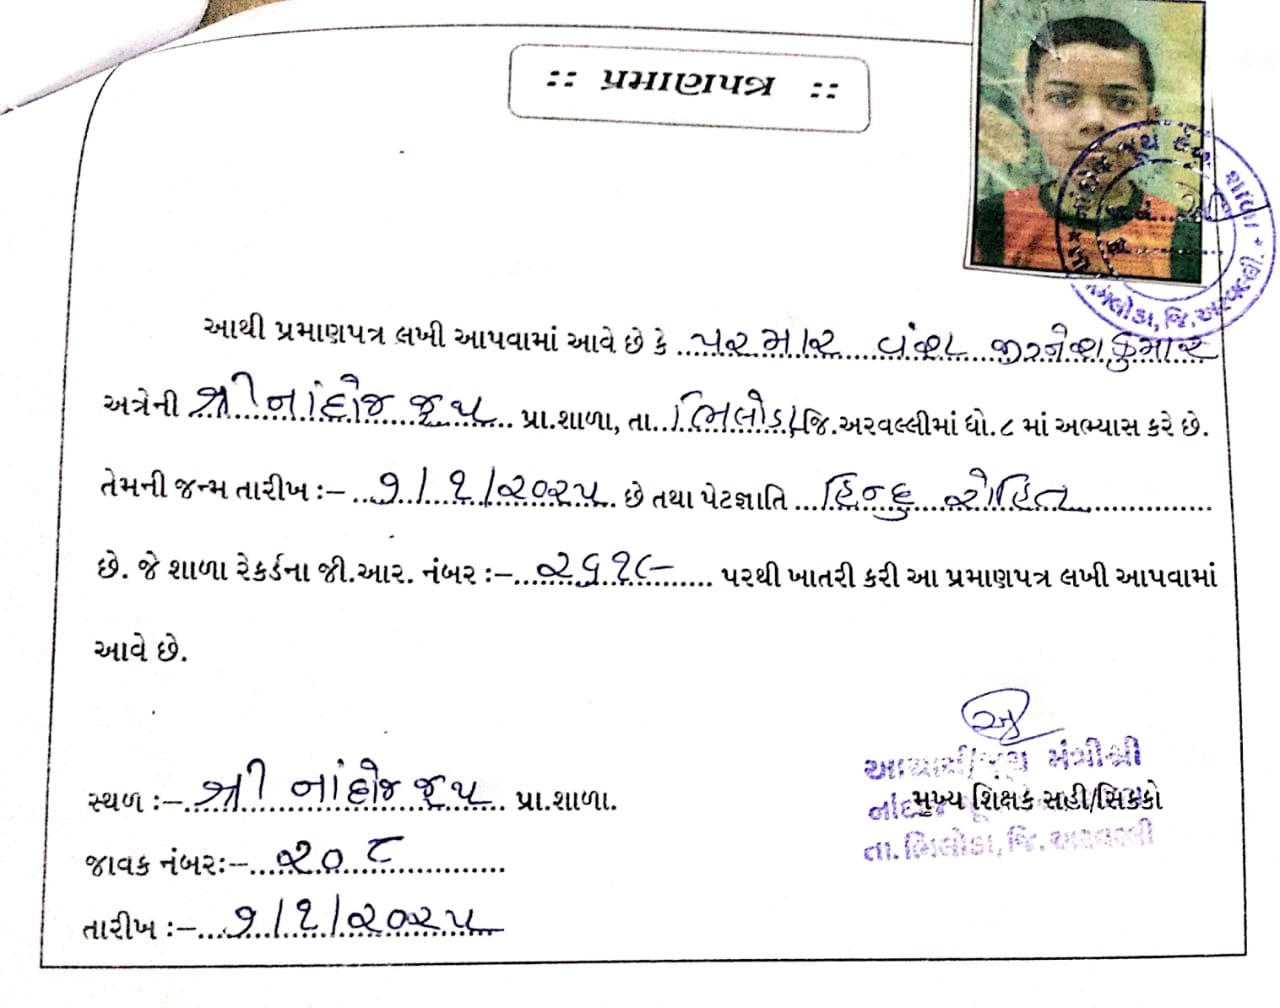 :: પ્રમાણપત્ર ::
આથી પ્રમાણપત્ર લખી આપવામાં આવે છે કે પરમાર વંશ જીગ્નેશકુમાર
અત્રેની શ્રી નાંદોજ જૂથ પ્રા.શાળા, તા. ભિલોડા જિ.અરવલ્લીમાં ધો.૮ માં અભ્યાસ કરે છે.
તેમની જન્મ તારીખ :- ૭/૧/૨૦૨૫ છે તથા પેટજ્ઞાતિ હિન્દુ રોહિત
છે. જે શાળા રેકર્ડના જી.આર. નંબર :- ૨૬૧૯ પરથી ખાતરી કરી આ પ્રમાણપત્ર લખી આપવામાં
આવે છે.
સ્થળ :- શ્રી નાંદોજ જૂથ પ્રા.શાળા.
જાવક નંબર:- ૨૦૮
તારીખ :- ૭/૧/૨૦૨૫
આચાર્ય/જૂથ મંત્રીશ્રી
મુખ્ય શિક્ષક સહી/સિક્કો
તા.ભિલોડા, જિ.અરવલ્લી